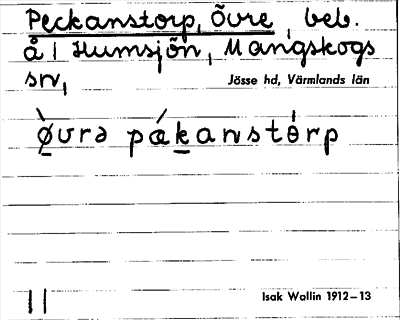 Peckanstorp, Övre, beb.
å l Humsjön, Mangskogs
sn,
Jösse hd, Värmlands län
ø̀vrə pǽkanstòrp
||
Isak Wallin 1912–13